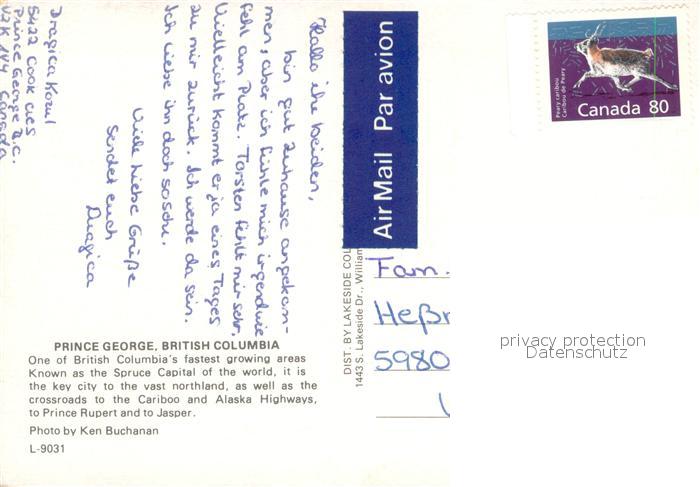 Hallo ihr beiden,
bin gut zuhause angekom-
men, aber ich fühle mich irgendwie
fehl am Platz. Torsten fehlt mir sehr.
Vielleicht kommt er ja eines Tages
zu mir zurück. Ich werde da sein.
Ich liebe ihn doch so sehr.
Viele liebe Grüße
sendet euch
Dragica
Dragica Kozul
5422 Cook
Prince George B.C.
V2K 1Y4 Canada
PRINCE GEORGE, BRITISH COLUMBIA
One of British Columbia's fastest growing areas
Known as the Spruce Capital of the world, it is
the key city to the vast northland, as well as the
crossroads to the Cariboo and Alaska Highways,
to Prince Rupert and to Jasper.
Photo by Ken Buchanan
L-9031
DIST. BY LAKESIDE COL
1443 S. Lakeside Dr., William
Air Mail Par avion
Peary caribou
Caribou de Peary
Canada 80
Fam.
Heßn
5980
privacy protection
Datenschutz